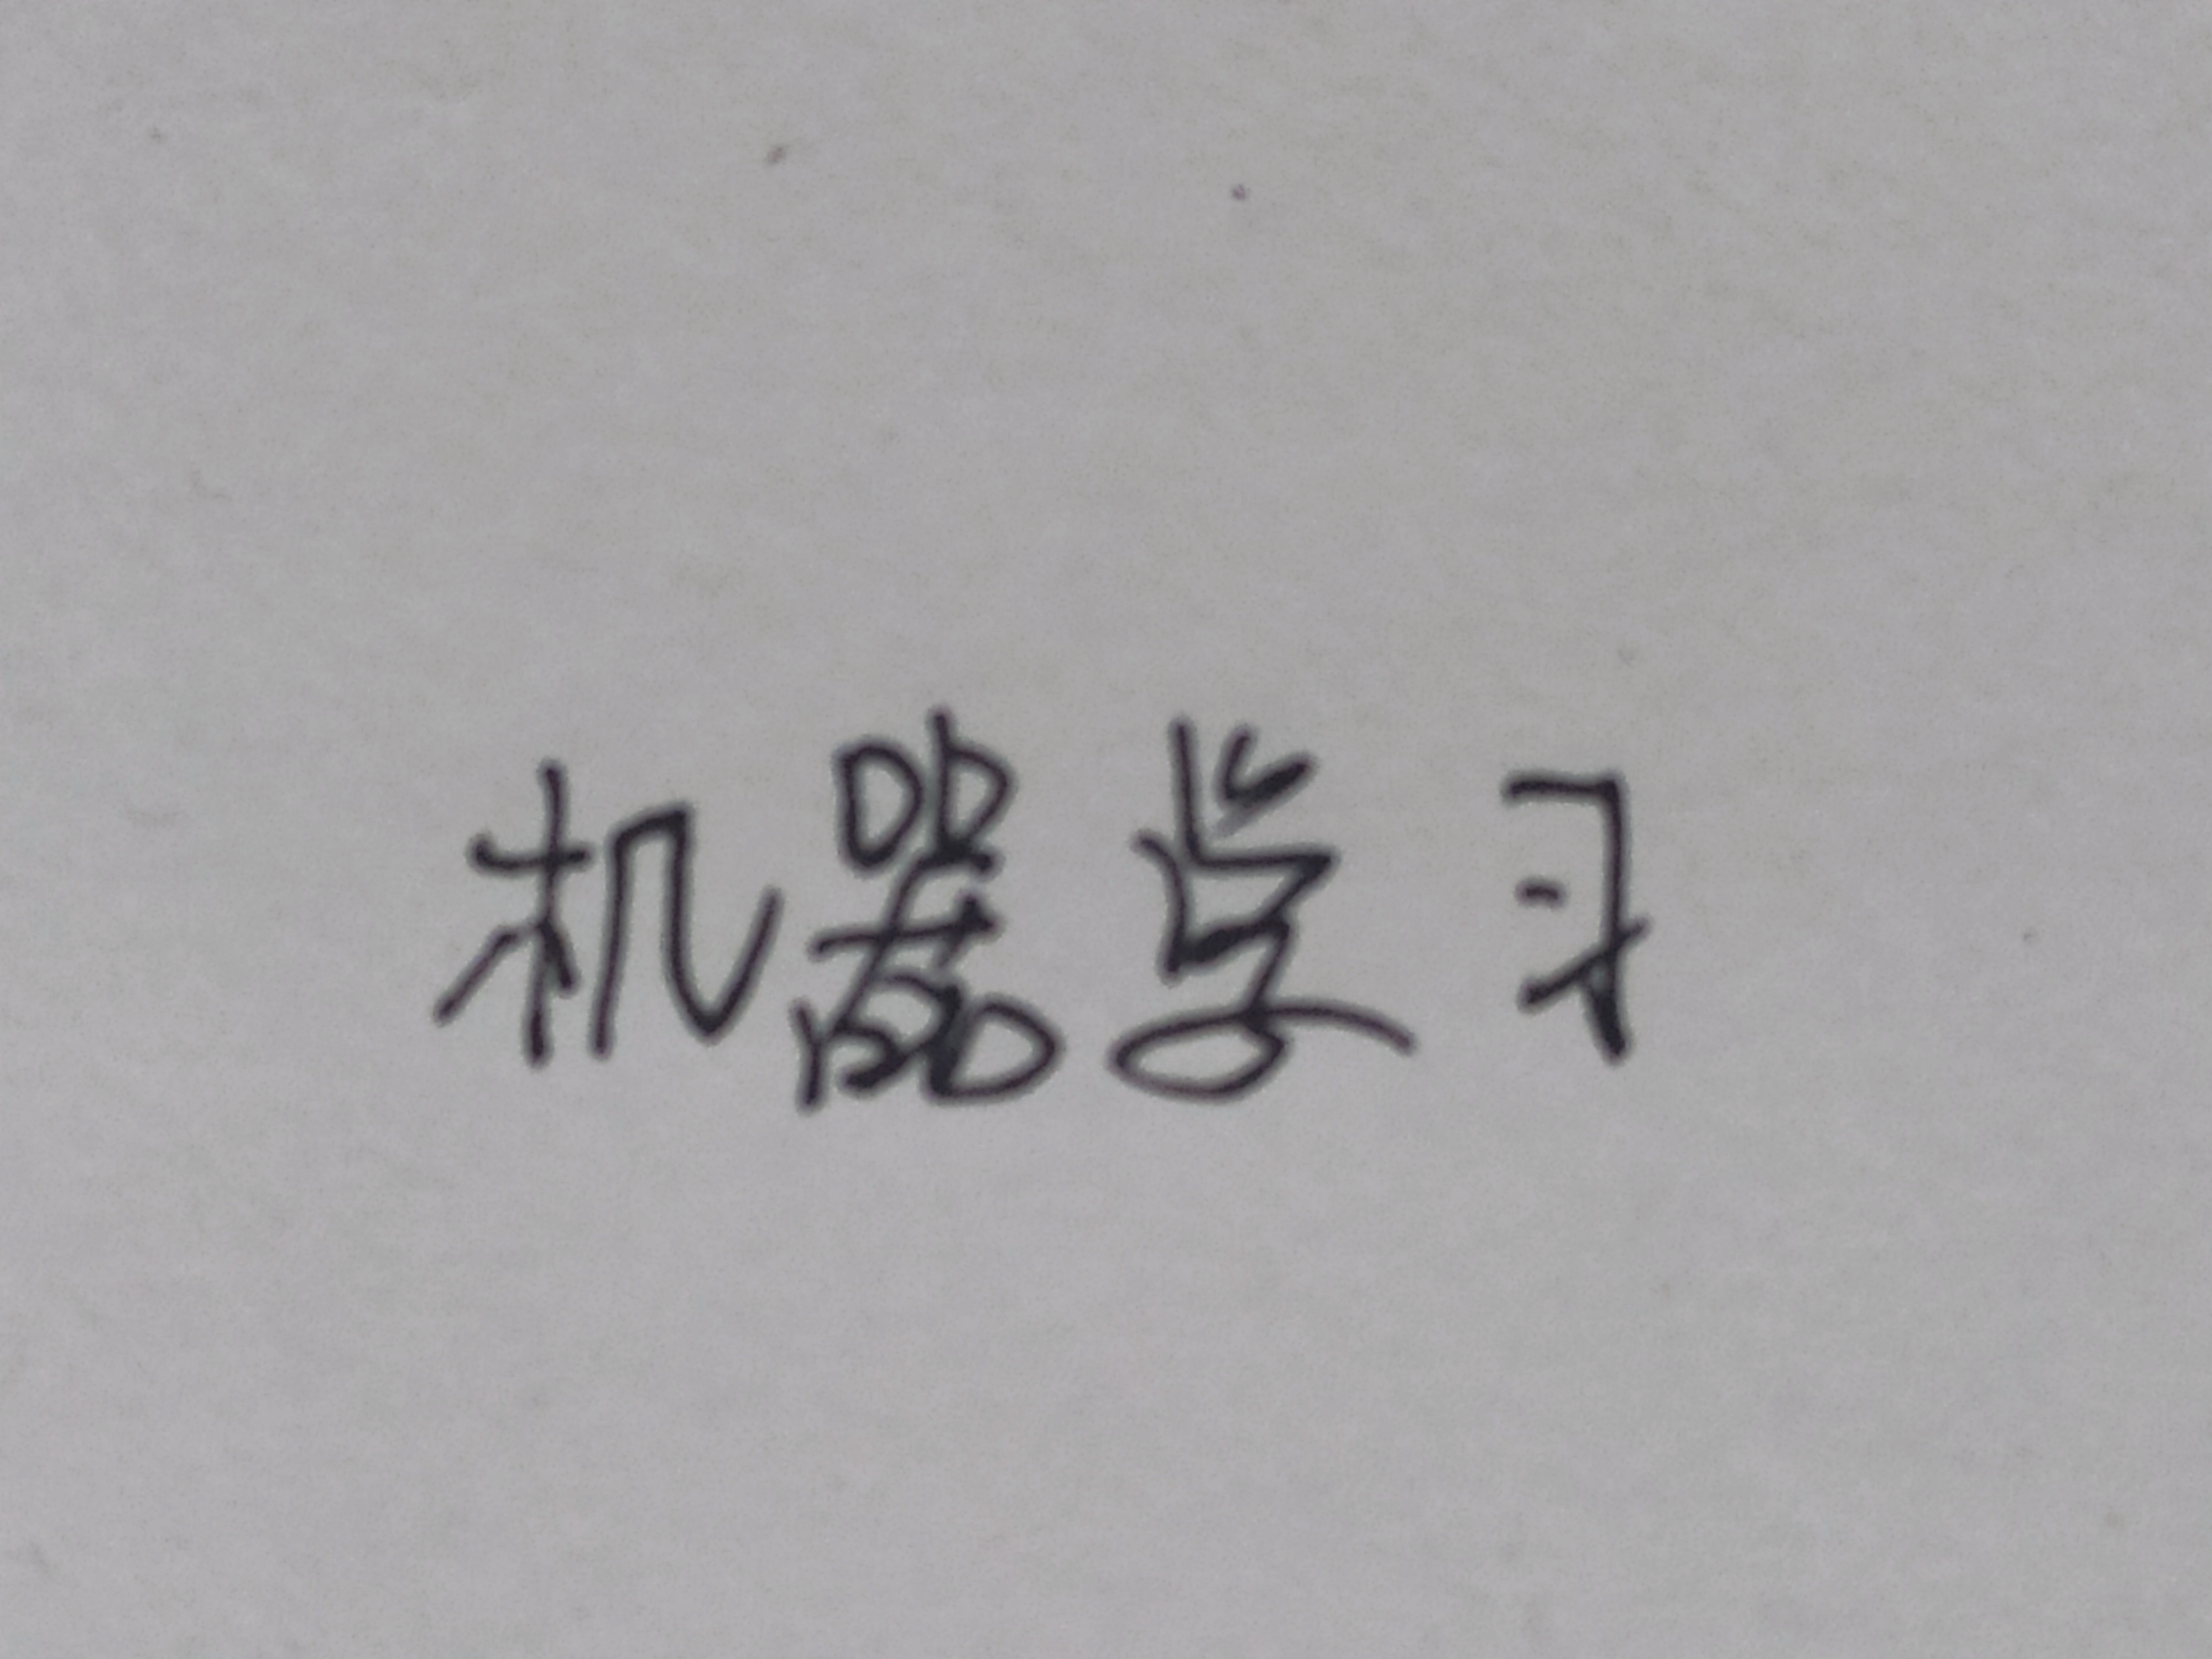 机器学习